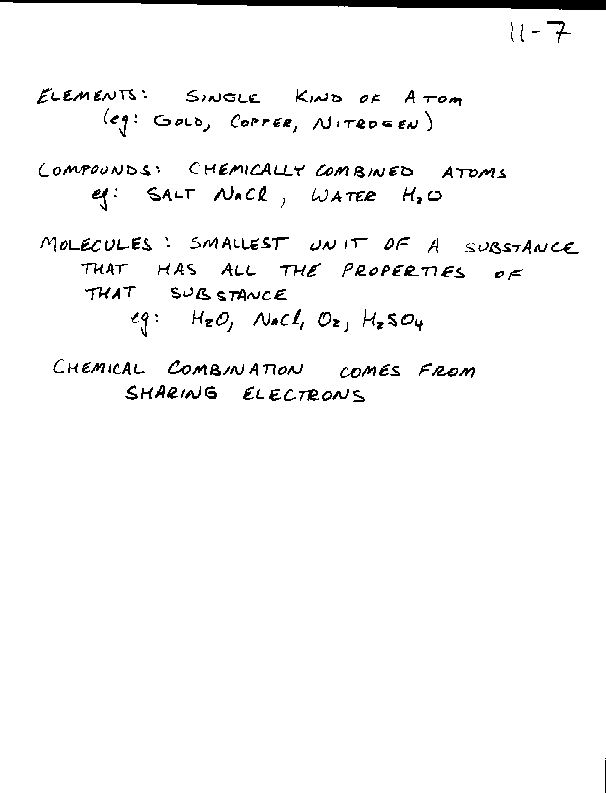 11-7
ELEMENTS: SINGLE KIND OF ATOM
(eg: GOLD, COPPER, NITROGEN)
COMPOUNDS: CHEMICALLY COMBINED ATOMS
eg: SALT NaCl, WATER H₂O
MOLECULES: SMALLEST UNIT OF A SUBSTANCE
THAT HAS ALL THE PROPERTIES OF
THAT SUBSTANCE
eg: H₂O, NaCl, O₂, H₂SO₄
CHEMICAL COMBINATION COMES FROM
SHARING ELECTRONS